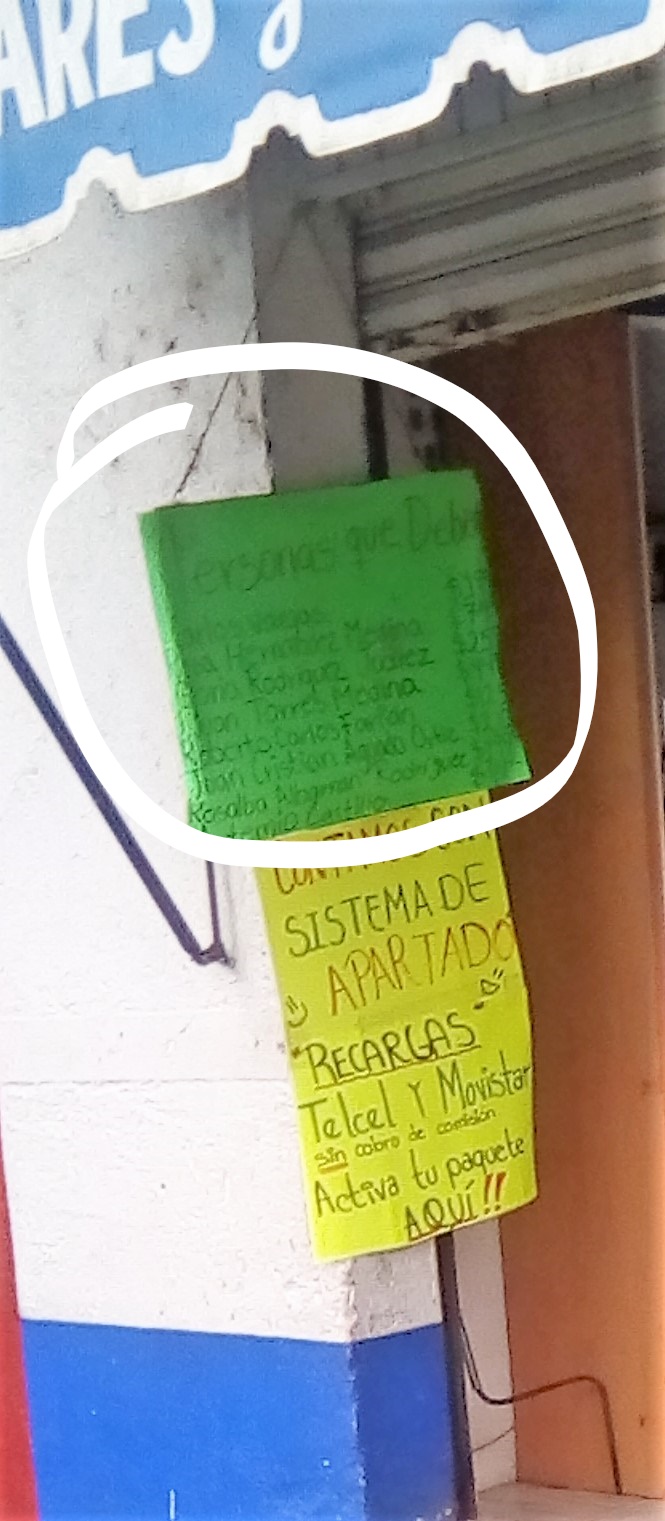 ARES y
Personas que Debe
Carlos Vargas
Hernandez Medina
Rodriguez Juarez
Juan Torres Medina
Roberto Carlos Farfan
Juan Cristian Aguado Ortiz
Rosalba Rodriguez
Castillo
CONTAMOS CON
SISTEMA DE
APARTADO
"RECARGAS"
Telcel Y Movistar
sin cobro de comisión
Activa tu paquete
AQUÍ!!